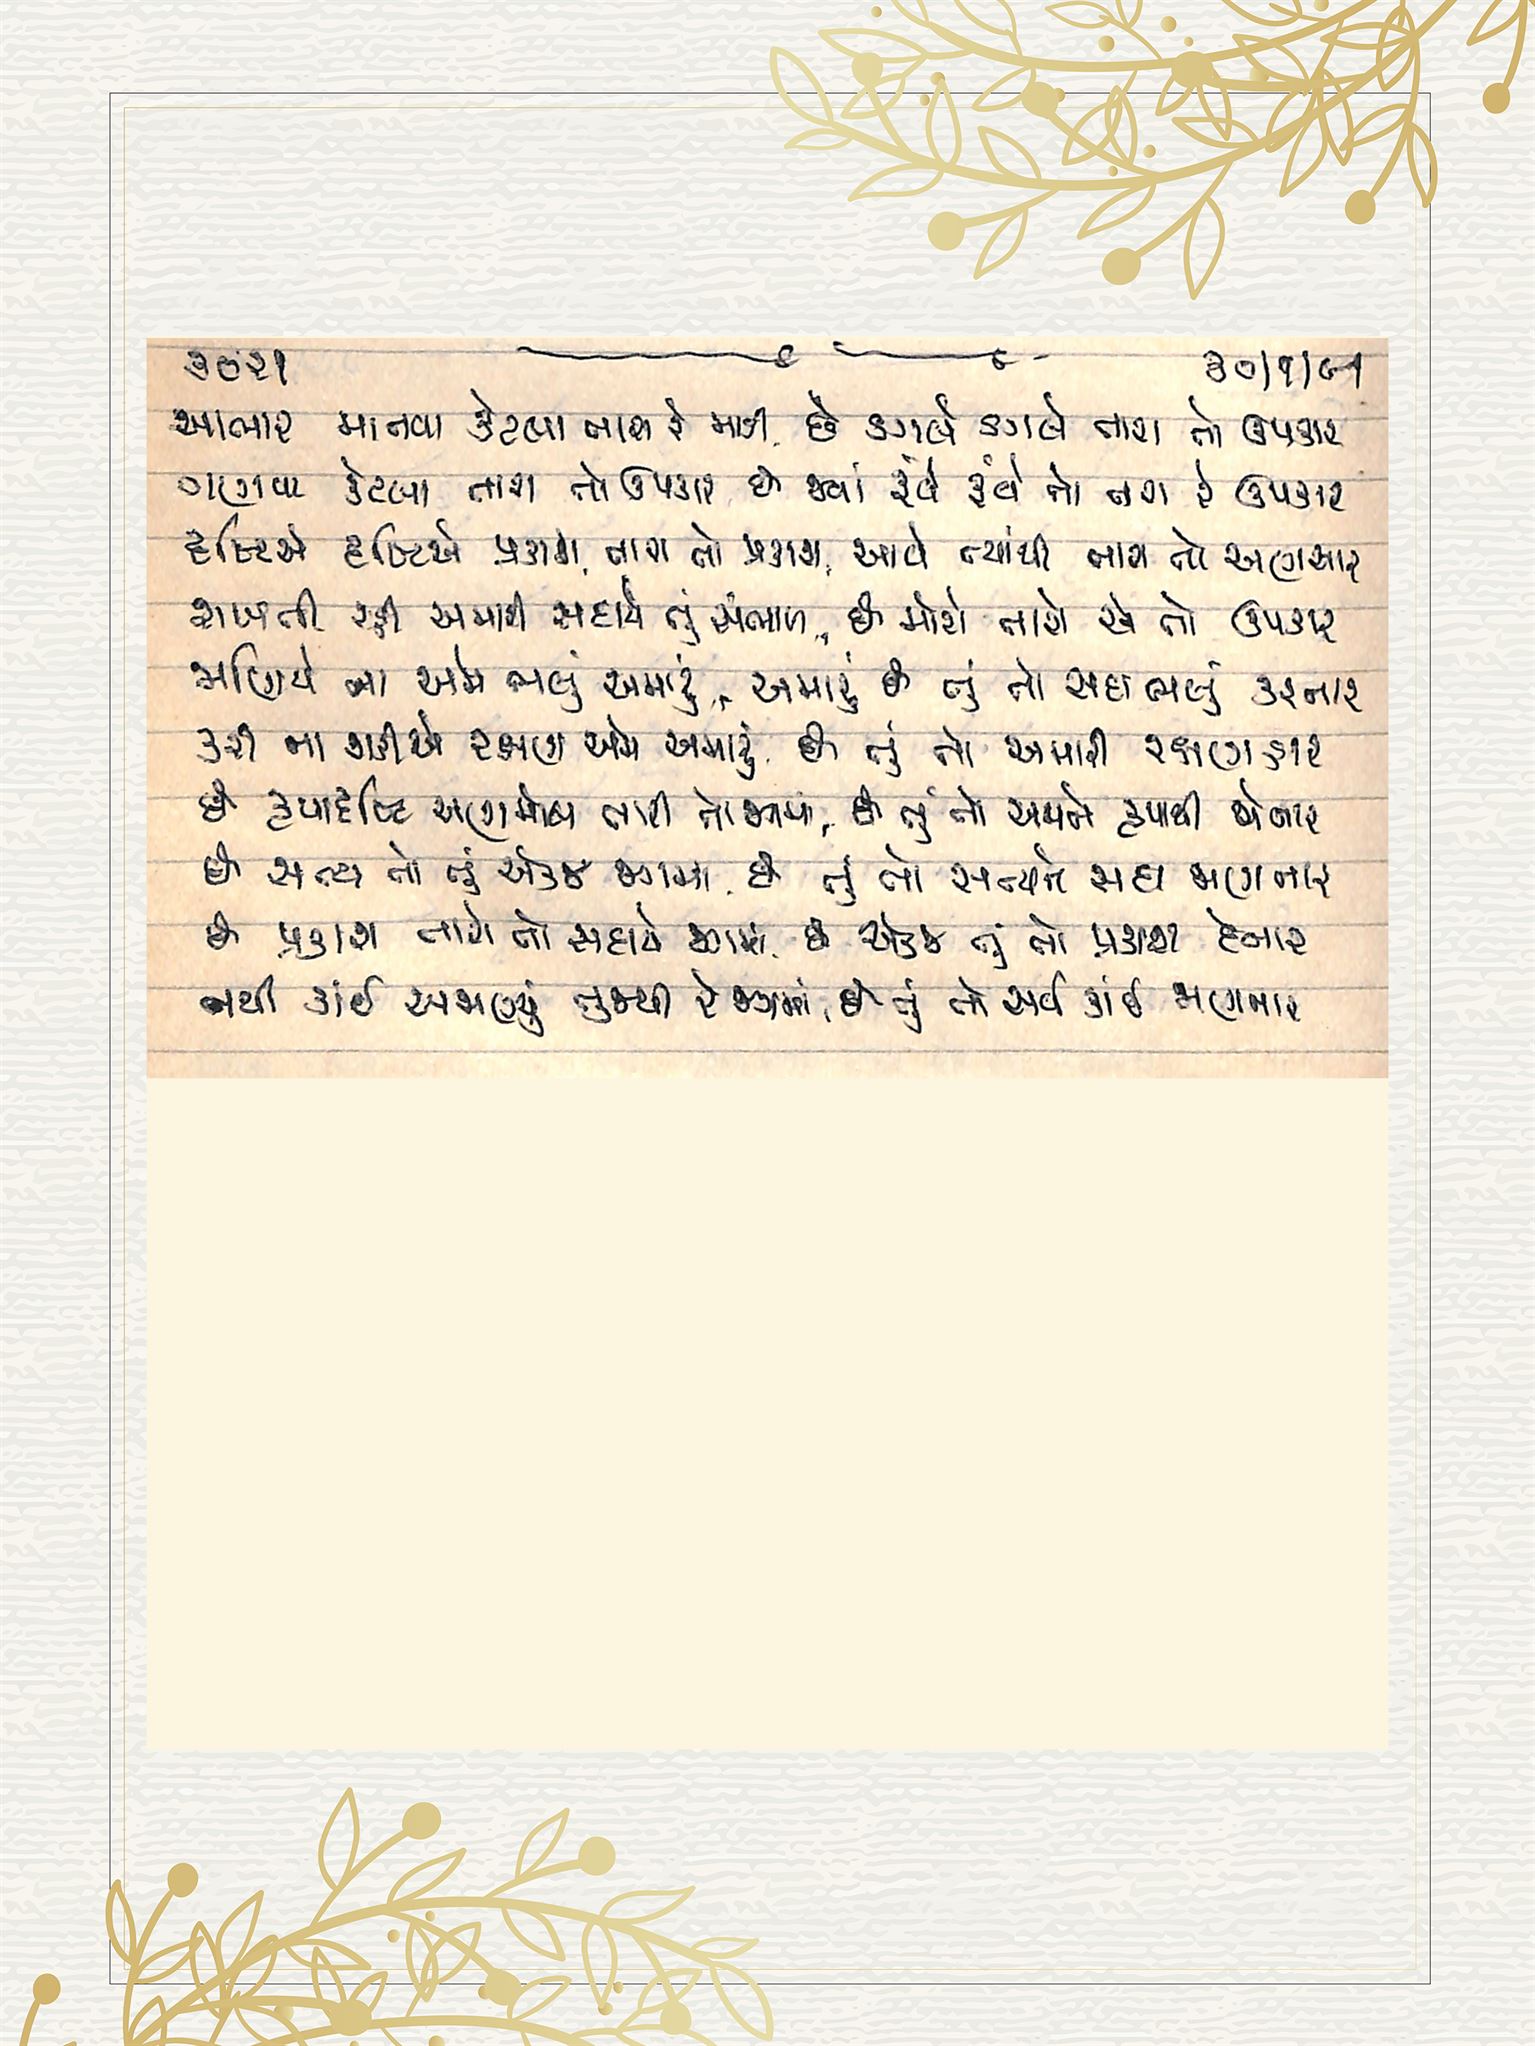 ૩૦૨૧ ૩૦/૧/૯૧
આભાર માનવા કેટલા તારા રે માડી, છે ડગલે ડગલે તારા તો ઉપકાર
ગણવા કેટલા તારા તો ઉપકાર, છે જ્યાં રૂંવે રૂંવે તો તારા રે ઉપકાર
દૃષ્ટિએ દૃષ્ટિએ પ્રકાશ, તારા તો પ્રકાશ, આવે ત્યાંથી તારા તો અણસાર
રાખતી રહી અમારી સદાયે તું સંભાળ, છે મોટો તારો એ તો ઉપકાર
જાણીયે ના અમે ભલું અમારું, અમારું છે તું તો સદા ભલું કરનાર
કરી ના શકીએ રક્ષણ અમે અમારું, છે તું તો અમારી રક્ષણહાર
છે કૃપાદૃષ્ટિ અણમોલ તારી તો જગમાં, છે તું તો અમને કૃપાથી જોનાર
છે સત્ય તો તું એકજ જગમાં, છે તું તો સત્યને સદા જાણનાર
છે પ્રકાશ તારો તો સદાયે જગમાં, છે એકજ તું તો પ્રકાશ દેનાર
નથી કાંઈ અજાણ્યું તુજથી રે જગમાં, છે તું તો સર્વ કાંઈ જાણનાર